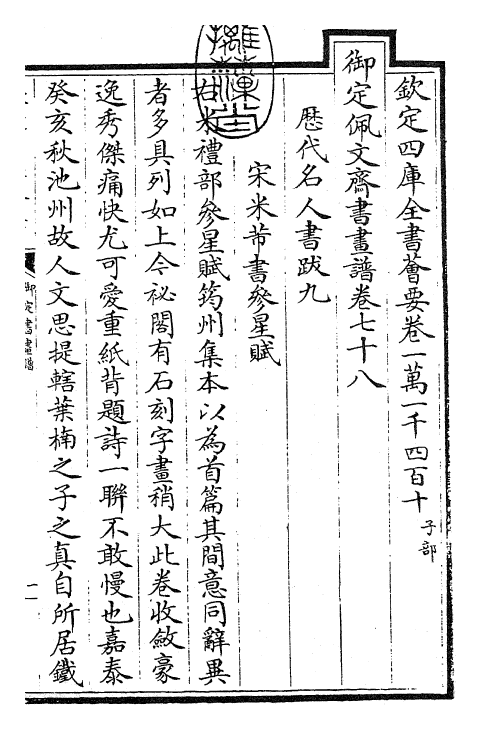 欽定四庫全書薈要卷一萬一千四百十 子部
御定佩文齋書畫譜卷七十八
歴代名人書跋九
宋米芾書參星賦
右米禮部參星賦筠州集本以為首篇其間意同辭異
者多具列如上今祕閣有石刻字畫稍大此卷收斂豪
逸秀傑痛快尤可愛重紙背題詩一聯不敢慢也嘉泰
癸亥秋池州故人文思提轄葉楠之子之真自所居鐵
御定書畫譜
一